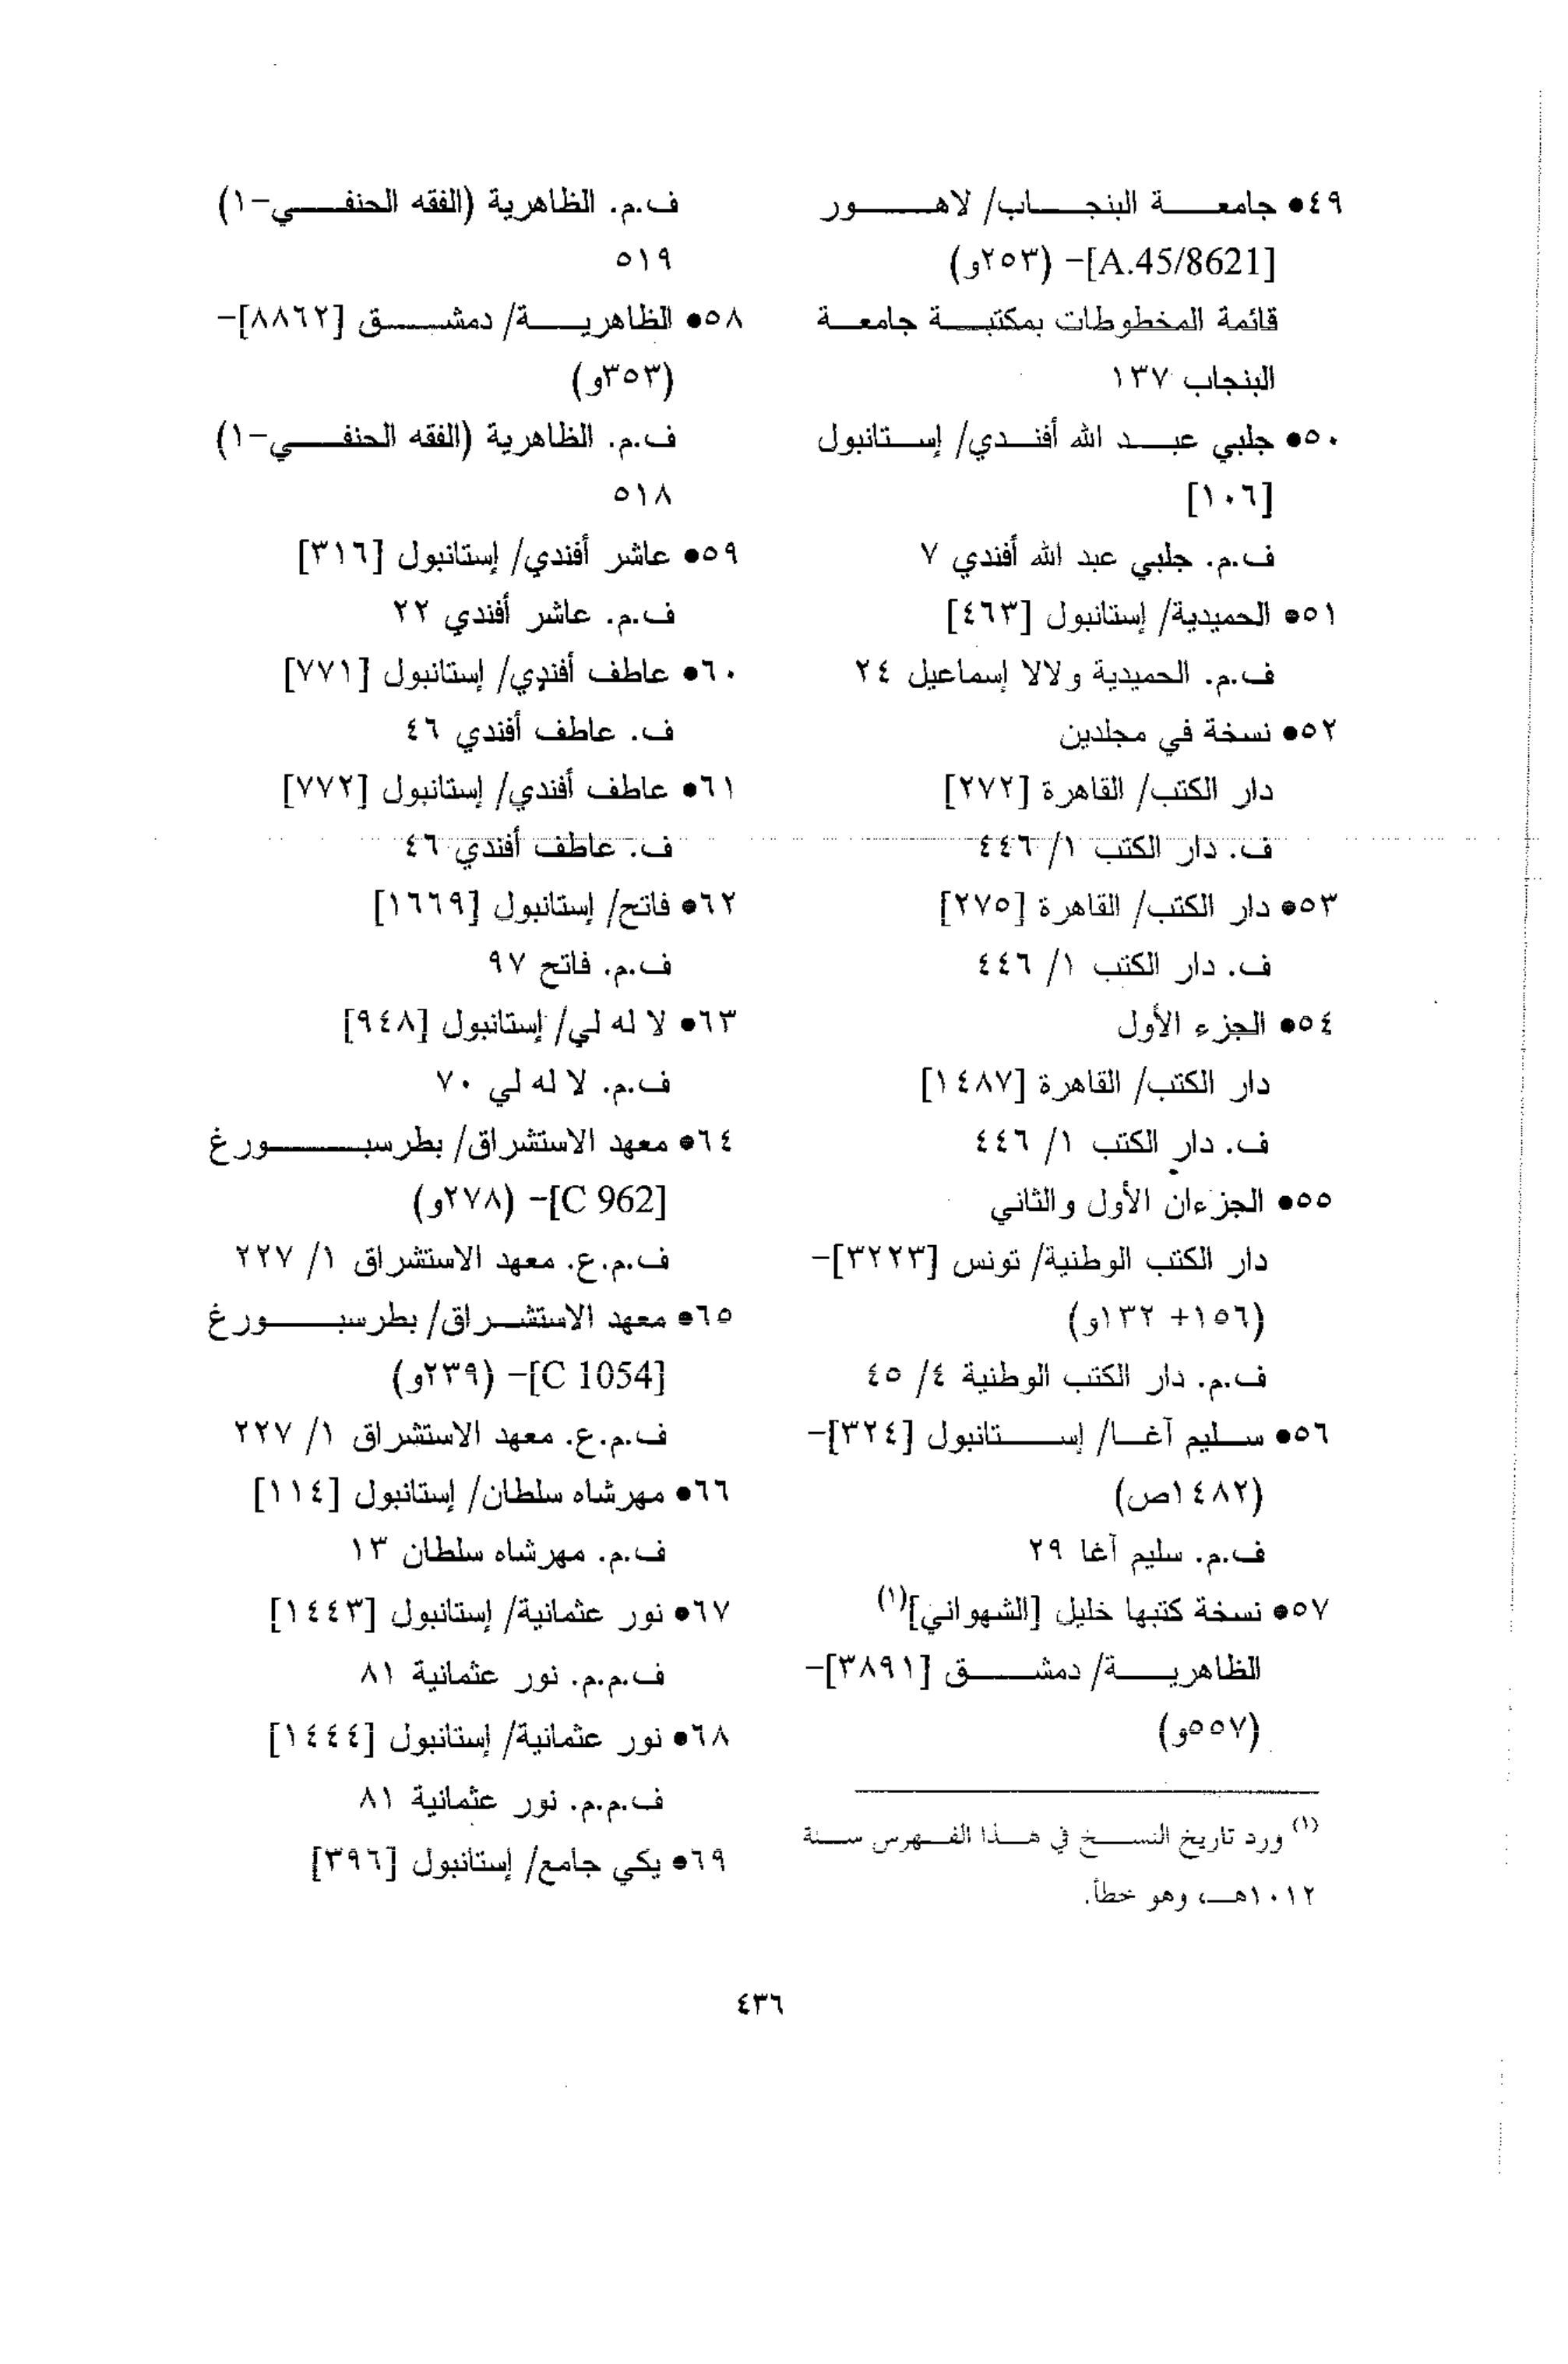 ٤٩● جامعة البنجاب/ لاهور
[A.45/8621]- (٢٥٣و)
قائمة المخطوطات بمكتبة جامعة
البنجاب ١٣٧
٥٠● جلبي عبد الله أفندي/ إستانبول
[١٠٦]
ف.م. جلبي عبد الله أفندي ٧
٥١● الحميدية/ إستانبول [٤٦٣]
ف.م. الحميدية ولالا إسماعيل ٢٤
٥٢● نسخة في مجلدين
دار الكتب/ القاهرة [٢٧٢]
ف. دار الكتب ١/ ٤٤٦
٥٣● دار الكتب/ القاهرة [٢٧٥]
ف. دار الكتب ١/ ٤٤٦
٥٤● الجزء الأول
دار الكتب/ القاهرة [١٤٨٧]
ف. دار الكتب ١/ ٤٤٦
٥٥● الجزءان الأول والثاني
دار الكتب الوطنية/ تونس [٣٢٢٣]-
(١٥٦+ ١٣٢و)
ف.م. دار الكتب الوطنية ٤/ ٤٥
٥٦● سليم آغا/ إستانبول [٣٢٤]-
(١٤٨٢ص)
ف.م. سليم آغا ٢٩
٥٧● نسخة كتبها خليل [الشهواني](١)
الظاهرية/ دمشق [٣٨٩١]-
(٥٥٧و)
(١) ورد تاريخ النسخ في هذا الفهرس سنة
١٠١٢هـ، وهو خطأ.
ف.م. الظاهرية (الفقه الحنفي-١)
٥١٩
٥٨● الظاهرية/ دمشق [٨٨٦٢]-
(٣٥٣و)
ف.م. الظاهرية (الفقه الحنفي-١)
٥١٨
٥٩● عاشر أفندي/ إستانبول [٣١٦]
ف.م. عاشر أفندي ٢٢
٦٠● عاطف أفندي/ إستانبول [٧٧١]
ف. عاطف أفندي ٤٦
٦١● عاطف أفندي/ إستانبول [٧٧٢]
ف. عاطف أفندي ٤٦
٦٢● فاتح/ إستانبول [١٦٦٩]
ف.م. فاتح ٩٧
٦٣● لا له لي/ إستانبول [٩٤٨]
ف.م. لا له لي ٧٠
٦٤● معهد الاستشراق/ بطرسبورغ
[C 962]- (٢٧٨و)
ف.م.ع. معهد الاستشراق ١/ ٢٢٧
٦٥● معهد الاستشراق/ بطرسبورغ
[C 1054]- (٢٣٩و)
ف.م.ع. معهد الاستشراق ١/ ٢٢٧
٦٦● مهرشاه سلطان/ إستانبول [١١٤]
ف.م. مهرشاه سلطان ١٣
٦٧● نور عثمانية/ إستانبول [١٤٤٣]
ف.م.م. نور عثمانية ٨١
٦٨● نور عثمانية/ إستانبول [١٤٤٤]
ف.م.م. نور عثمانية ٨١
٦٩● يكي جامع/ إستانبول [٣٩٦]
٤٣٦